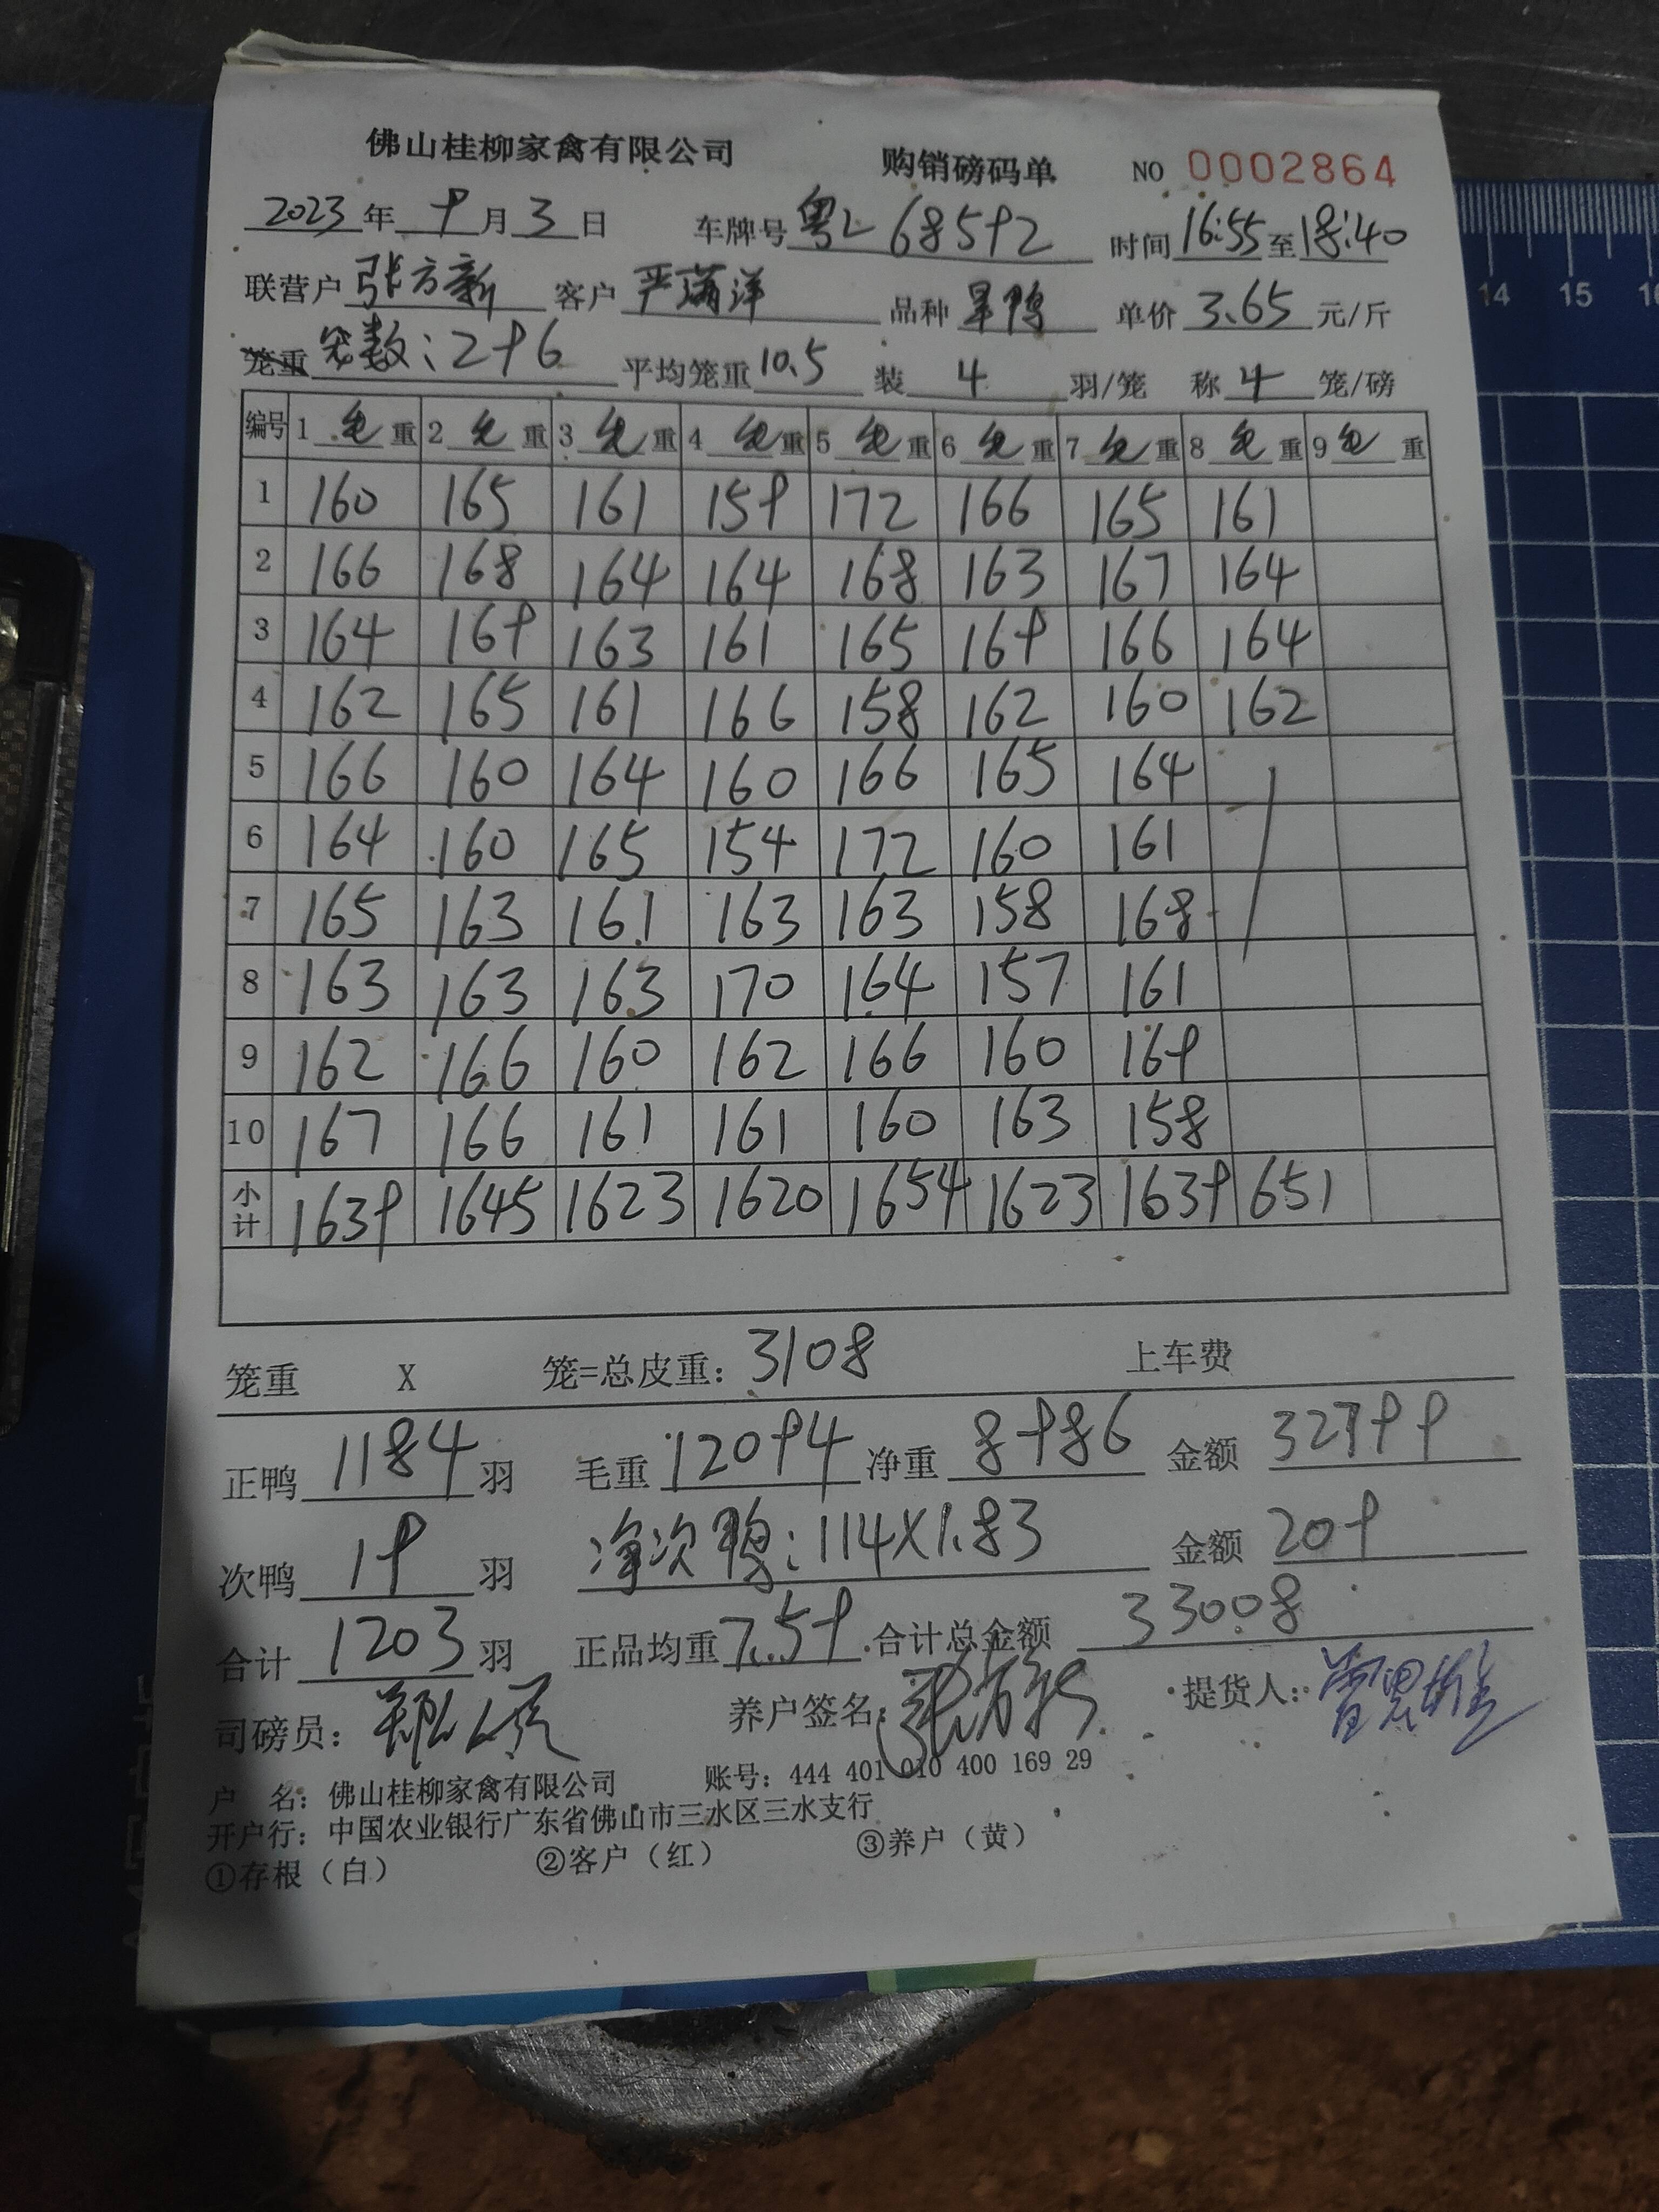 佛山桂柳家禽有限公司 购销磅码单 NO 0002864
2023年 9月 3日 车牌号 粤L 68592 时间 16:55至18:40
联营户 张方新 客户 严满洋 品种 旱鸭 单价 3.65 元/斤
笼重 笼数:296 平均笼重 10.5 装 4 羽/笼 称 4 笼/磅
编号 1 毛 重 2 毛 重 3 毛 重 4 毛 重 5 毛 重 6 毛 重 7 毛 重 8 毛 重 9 毛 重
1 160 165 161 159 172 166 165 161
2 166 168 164 164 168 163 167 164
3 164 169 163 161 165 169 166 164
4 162 165 161 166 158 162 160 162
5 166 160 164 160 166 165 164
6 164 160 165 154 172 160 161
7 165 163 161 163 163 158 168
8 163 163 163 170 164 157 161
9 162 166 160 162 166 160 169
10 167 166 161 161 160 163 158
小计 1639 1645 1623 1620 1654 1623 1639 651
笼重 X 笼=总皮重: 3108 上车费
正鸭 1184 羽 毛重 12094 净重 8986 金额 32799
次鸭 19 羽 净次鸭:114X1.83 金额 209
合计 1203 羽 正品均重 7.59 合计总金额 33008
司磅员: 养户签名: 张方新 提货人:
户 名: 佛山桂柳家禽有限公司 账号: 444 401 010 400 169 29
开户行: 中国农业银行广东省佛山市三水区三水支行
①存根(白) ②客户(红) ③养户(黄)
14 15